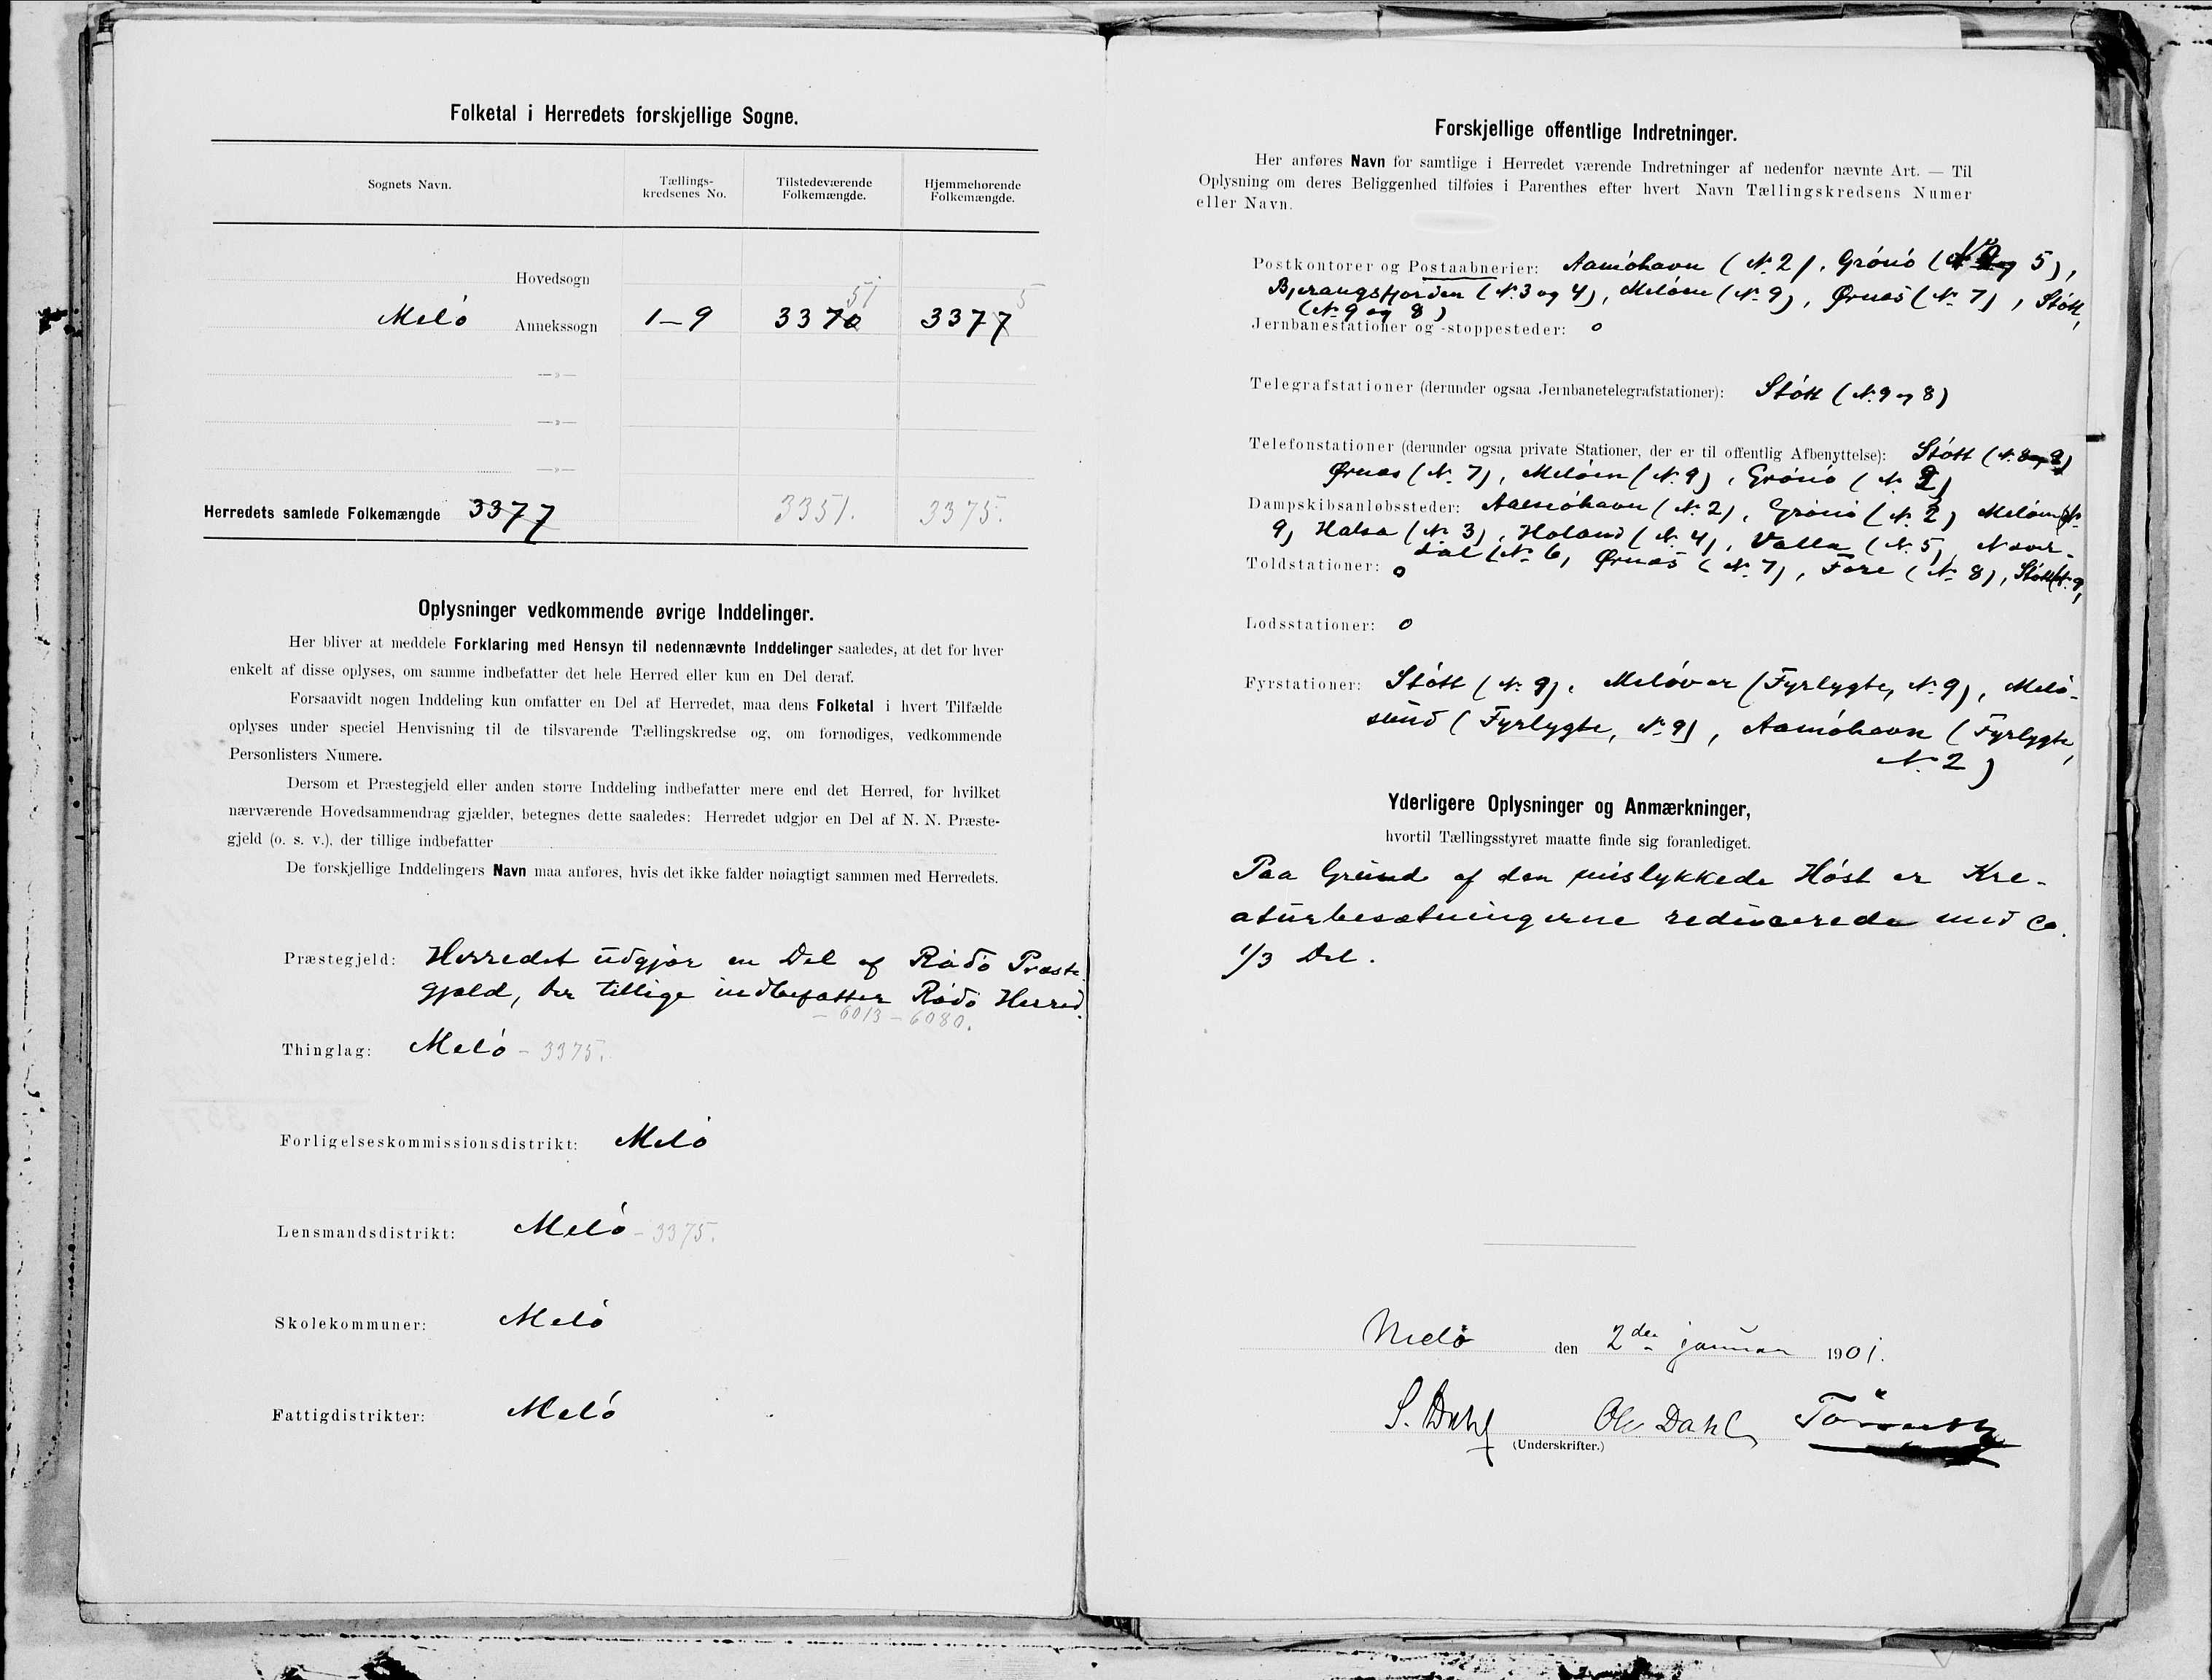 Folketal i Herredets forskjellige Sogne.
Sognets Navn. Tællings-kredsenes No. Tilstedeværende Folkemængde. Hjemmehørende Folkemængde.
Hovedsogn
51 5
Melö Annekssogn 1–9 3370 3377
—»—
—»—
—»—
Herredets samlede Folkemængde 3377 3351. 3375.
Oplysninger vedkommende øvrige Inddelinger.
Her bliver at meddele Forklaring med Hensyn til nedennævnte Inddelinger saaledes, at det for hver
enkelt af disse oplyses, om samme indbefatter det hele Herred eller kun en Del deraf.
Forsaavidt nogen Inddeling kun omfatter en Del af Herredet, maa dens Folketal i hvert Tilfælde
oplyses under speciel Henvisning til de tilsvarende Tællingskredse og, om fornødiges, vedkommende
Personlisters Numere.
Dersom et Præstegjeld eller anden større Inddeling indbefatter mere end det Herred, for hvilket
nærværende Hovedsammendrag gjælder, betegnes dette saaledes: Herredet udgjør en Del af N. N. Præste-
gjeld (o. s. v.), der tillige indbefatter
De forskjellige Inddelingers Navn maa anføres, hvis det ikke falder nøiagtigt sammen med Herredets.
Præstegjeld: Herredet udgjør en Del af Rödö Præste
gjæld, der tillige indbefatter Rödö Herred.
– 6013 – 6080.
Thinglag: Melö – 3375.
Forligelseskommissionsdistrikt: Melö
Lensmandsdistrikt: Melö – 3375.
Skolekommuner: Melö
Fattigdistrikter: Melö
Forskjellige offentlige Indretninger.
Her anføres Navn for samtlige i Herredet værende Indretninger af nedenfor nævnte Art. — Til
Oplysning om deres Beliggenhed tilføies i Parenthes efter hvert Navn Tællingskredsens Numer
eller Navn.
Postkontorer og Postaabnerier: Aamöhavn (N. 2), Grönö ( 5),
Bjerangsfjorden (N. 3 og 4), Melöen (N. 9), Ørnæs (N. 7), Stött,
(N. 9 og 8)
Jernbanestationer og -stoppesteder: 0
Telegrafstationer (derunder ogsaa Jernbanetelegrafstationer): Stött (N. 9 og 8)
Telefonstationer (derunder ogsaa private Stationer, der er til offentlig Afbenyttelse): Stött (N. 8 og 9)
Ørnæs (N. 7), Melöen (N. 9), Grönö (N. 2)
Dampskibsanløbssteder: Aamöhavn (N. 2), Grönö (N. 2) Melöen (N.
9) Halsa (N. 3), Holand (N. 4), Valla (N. 5), Næver-
dal (N. 6, Ørnæs (N. 7), Fore (N. 8), Stött (N. 9,
Toldstationer: 0
Lodsstationer: 0
Fyrstationer: Stött (N. 9), Melövær (Fyrlygte, N. 9), Melö-
sund (Fyrlygte, N. 9), Aamöhavn (Fyrlygte,
N. 2)
Yderligere Oplysninger og Anmærkninger,
hvortil Tællingsstyret maatte finde sig foranlediget.
Paa Grund af den mislykkede Höst er Kre-
aturbesætningerne reducerede med ca.
1/3 Del.
Melö den 2den januar 1901.
S. Dahl Ole Dahl
(Underskrifter.)